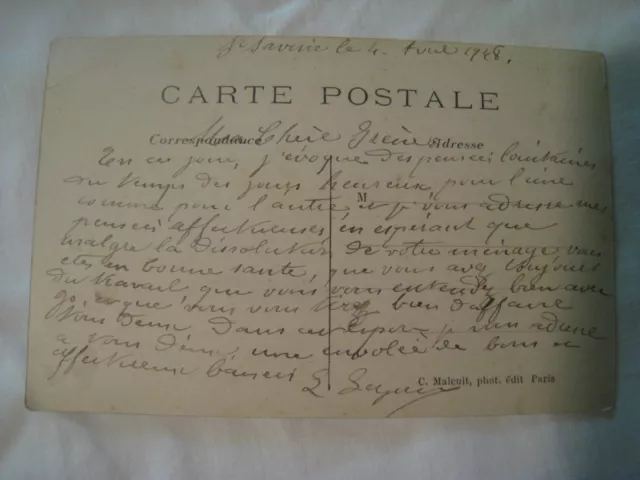 St Savine le 4 Avril 1948,
CARTE POSTALE
Correspondance Adresse
Ma Chère Irène
En ce jour, j'évoque des pensées lointaines
du temps des jours heureux, pour l'une
comme pour l'autre, et je vous adresse mes
M
pensées affectueuses, en espérant que
malgré la dissolution de votre ménage vous
etes en bonne santé, que vous avez toujours
du travail que vous vous entendez bien avec
que vous vous bien d'affaire
vous deux. Dans cet espoir, je vous adresse
a vous deux, une envolée de bons et
affectueux baisers
C. Maleuit, phot. édit Paris